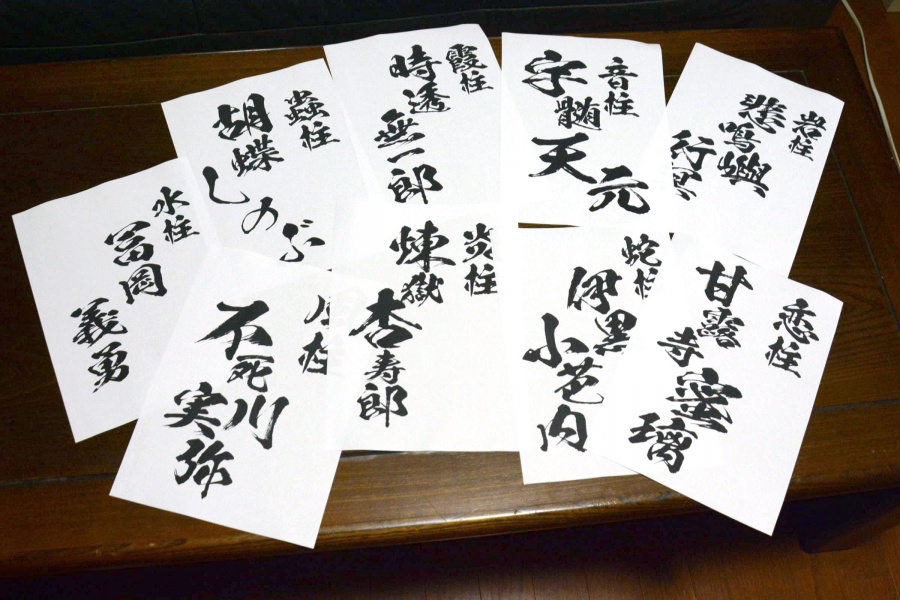 水柱
冨岡
義勇
蟲柱
胡蝶
しのぶ
霞柱
時透
無一郎
音柱
宇髄
天元
岩柱
悲鳴嶼
行冥
風柱
不死川
実弥
炎柱
煉獄
杏寿郎
蛇柱
伊黒
小芭内
恋柱
甘露寺
蜜璃